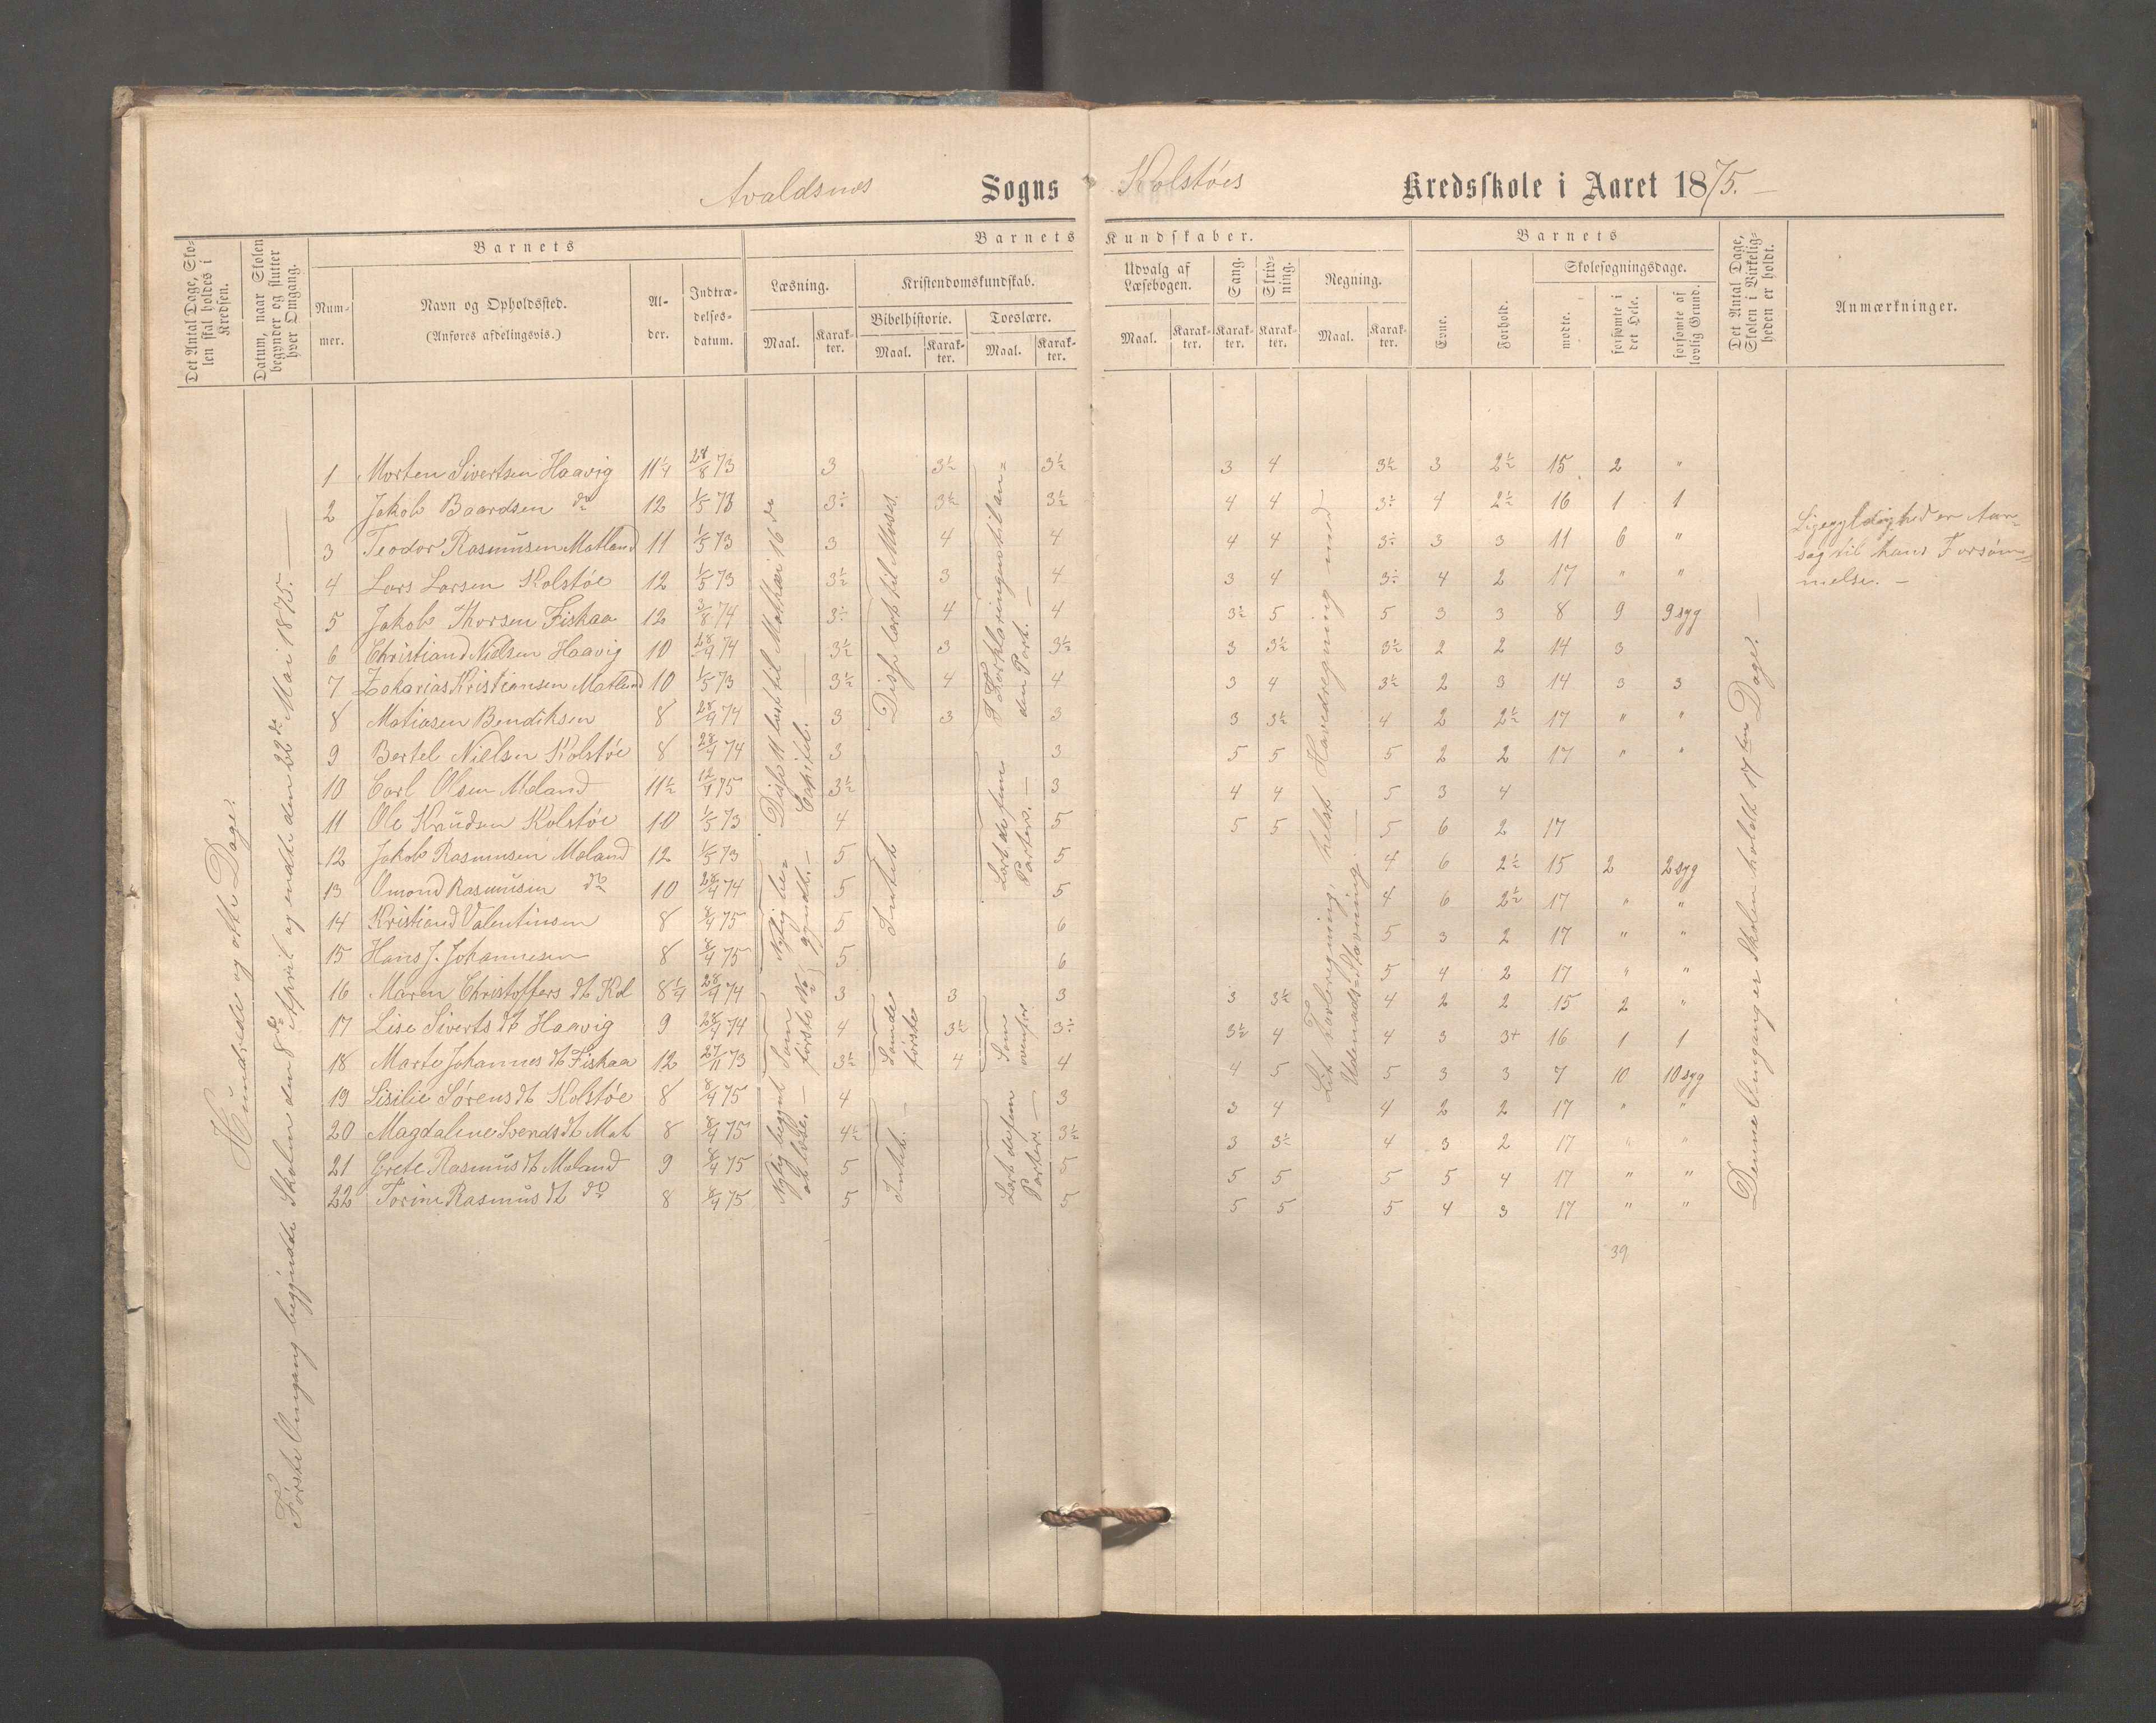 Avaldsnes Sogns Kolstöes Kredsskole i Aaret 1875.
Det Antal Dage, Skolen skal holdes i Kredsen.
Datum, naar Skolen begynder og slutter hver Omgang.
Barnets
Nummer.
Navn og Opholdssted.
(Anføres afdelingsvis.)
Alder.
Indtrædelsesdatum.
Barnets Kundskaber.
Læsning.
Maal. Karakter.
Kristendomskundskab.
Bibelhistorie. Troeslære.
Maal. Karakter. Maal. Karakter.
Udvalg af Læsebogen.
Maal. Karakter.
Sang. Karakter.
Skrivning. Karakter.
Regning.
Maal. Karakter.
Barnets
Evne. Forhold.
Skolesøgningsdage.
mødte. forsømte i det Hele. forsømte af lovlig Grund.
Det Antal Dage, Skolen i Virkeligheden er holdt.
Anmærkninger.
Hundrede og otte Dage.
Første Omgang begyndte Skolen den 8de April og endte den 22de Mai 1875.
1 Morten Sivertsen Haavig 11 1/4 28/8 73 3 3½ 3½ 3 4 3½ 3 2½ 15 2 "
2 Jakob Baardsen do 12 1/5 73 3÷ 3½ 3½ 4 4 3÷ 4 2½ 16 1 1
3 Teodor Rasmusen Matland 11 1/5 73 3 4 4 4 4 3÷ 3 3 11 6 "
4 Lars Larsen Kolstöe 12 1/5 73 3½ 3 4 3 4 3÷ 4 2 17 " "
5 Jakob Thorsen Fiskaa 12 3/8 74 3÷ 4 4 3½ 5 5 3 3 8 9 9 syg
6 Christian Nielsen Haavig 10 28/9 74 3½ 3 3½ 3 3½ 3½ 2 2 14 3
7 Zakarias Kristiansen Matland 10 1/5 73 3½ 4 4 3 4 3½ 2 3 14 3 3
8 Matiasen Bendiksen 8 28/9 74 3 3 3 3 3½ 4 2 2½ 17 " "
9 Bertel Nielsen Kolstöe 8 28/4 74 3 3 5 5 5 2 2 17 " "
10 Carl Olsen Meland 11½ 12/4 75 3½ 3 4 4 5 3 4
11 Ole Knudsen Kolstöe 10 1/5 73 4 5 5 5 5 6 2 17
12 Jakob Rasmusen Meland 12 1/5 73 5 5 4 6 2½ 15 2 2 syg
13 Omond Rasmusen do 10 28/4 74 5 5 4 6 2½ 17 " "
14 Kristian Valentinsen 8 8/4 75 5 6 5 3 2 17 " "
15 Hans J. Johannesen 8 8/4 75 5 6 5 4 2 17 " "
16 Maren Christoffers dt Kol 8 1/4 28/9 74 3 3 3 3 3½ 4 2 2 15 2 "
17 Lise Siverts dt Haavig 9 28/9 74 4 3½ 3÷ 3½ 4 4 3 3+ 16 1 1
18 Marte Johannes dt Fiskaa 12 27/11 73 3½ 4 4 4 5 5 3 3 7 10 10 syg
19 Sisilie Sørens dt Kolstöe 8 8/4 75 4 3 3 4 4 2 2 17 " "
20 Magdalene Svends dt Mat 8 8/4 75 4½ 3½ 3 3½ 4 3 2 17 " "
21 Grete Rasmus dt Meland 9 8/4 75 5 5 5 5 5 5 4 17 " "
22 Torine Rasmus dt do 8 8/4 75 5 5 5 5 5 4 3 17 " "
39
Disse 11 læst til Matthæi 16 de Capitel.
Nylig begyndt.
Som første No
Nylig begynt at læse.
Disse læst til Moses.
Intet
Samde første
Intet.
I Forklaringen til anden Part.
Læst de fem Parter.
Som ovenfor
Læst de fem Parter.
Lit Tavleregning, helst Hovedregning med Udenads-Stavning.
Denne Omgang er Skolen holdt 17ten Dage.
Ligegyldighed er Aar-
sag til hans Forsöm-
melse.